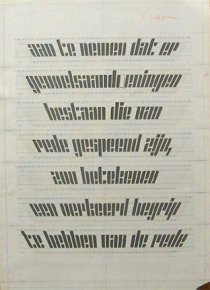 aan te nemen dat er
gevoelsaandoeningen
bestaan die van
rede gespeend zijn,
zou betekenen
een verkeerd begrip
te hebben van de rede